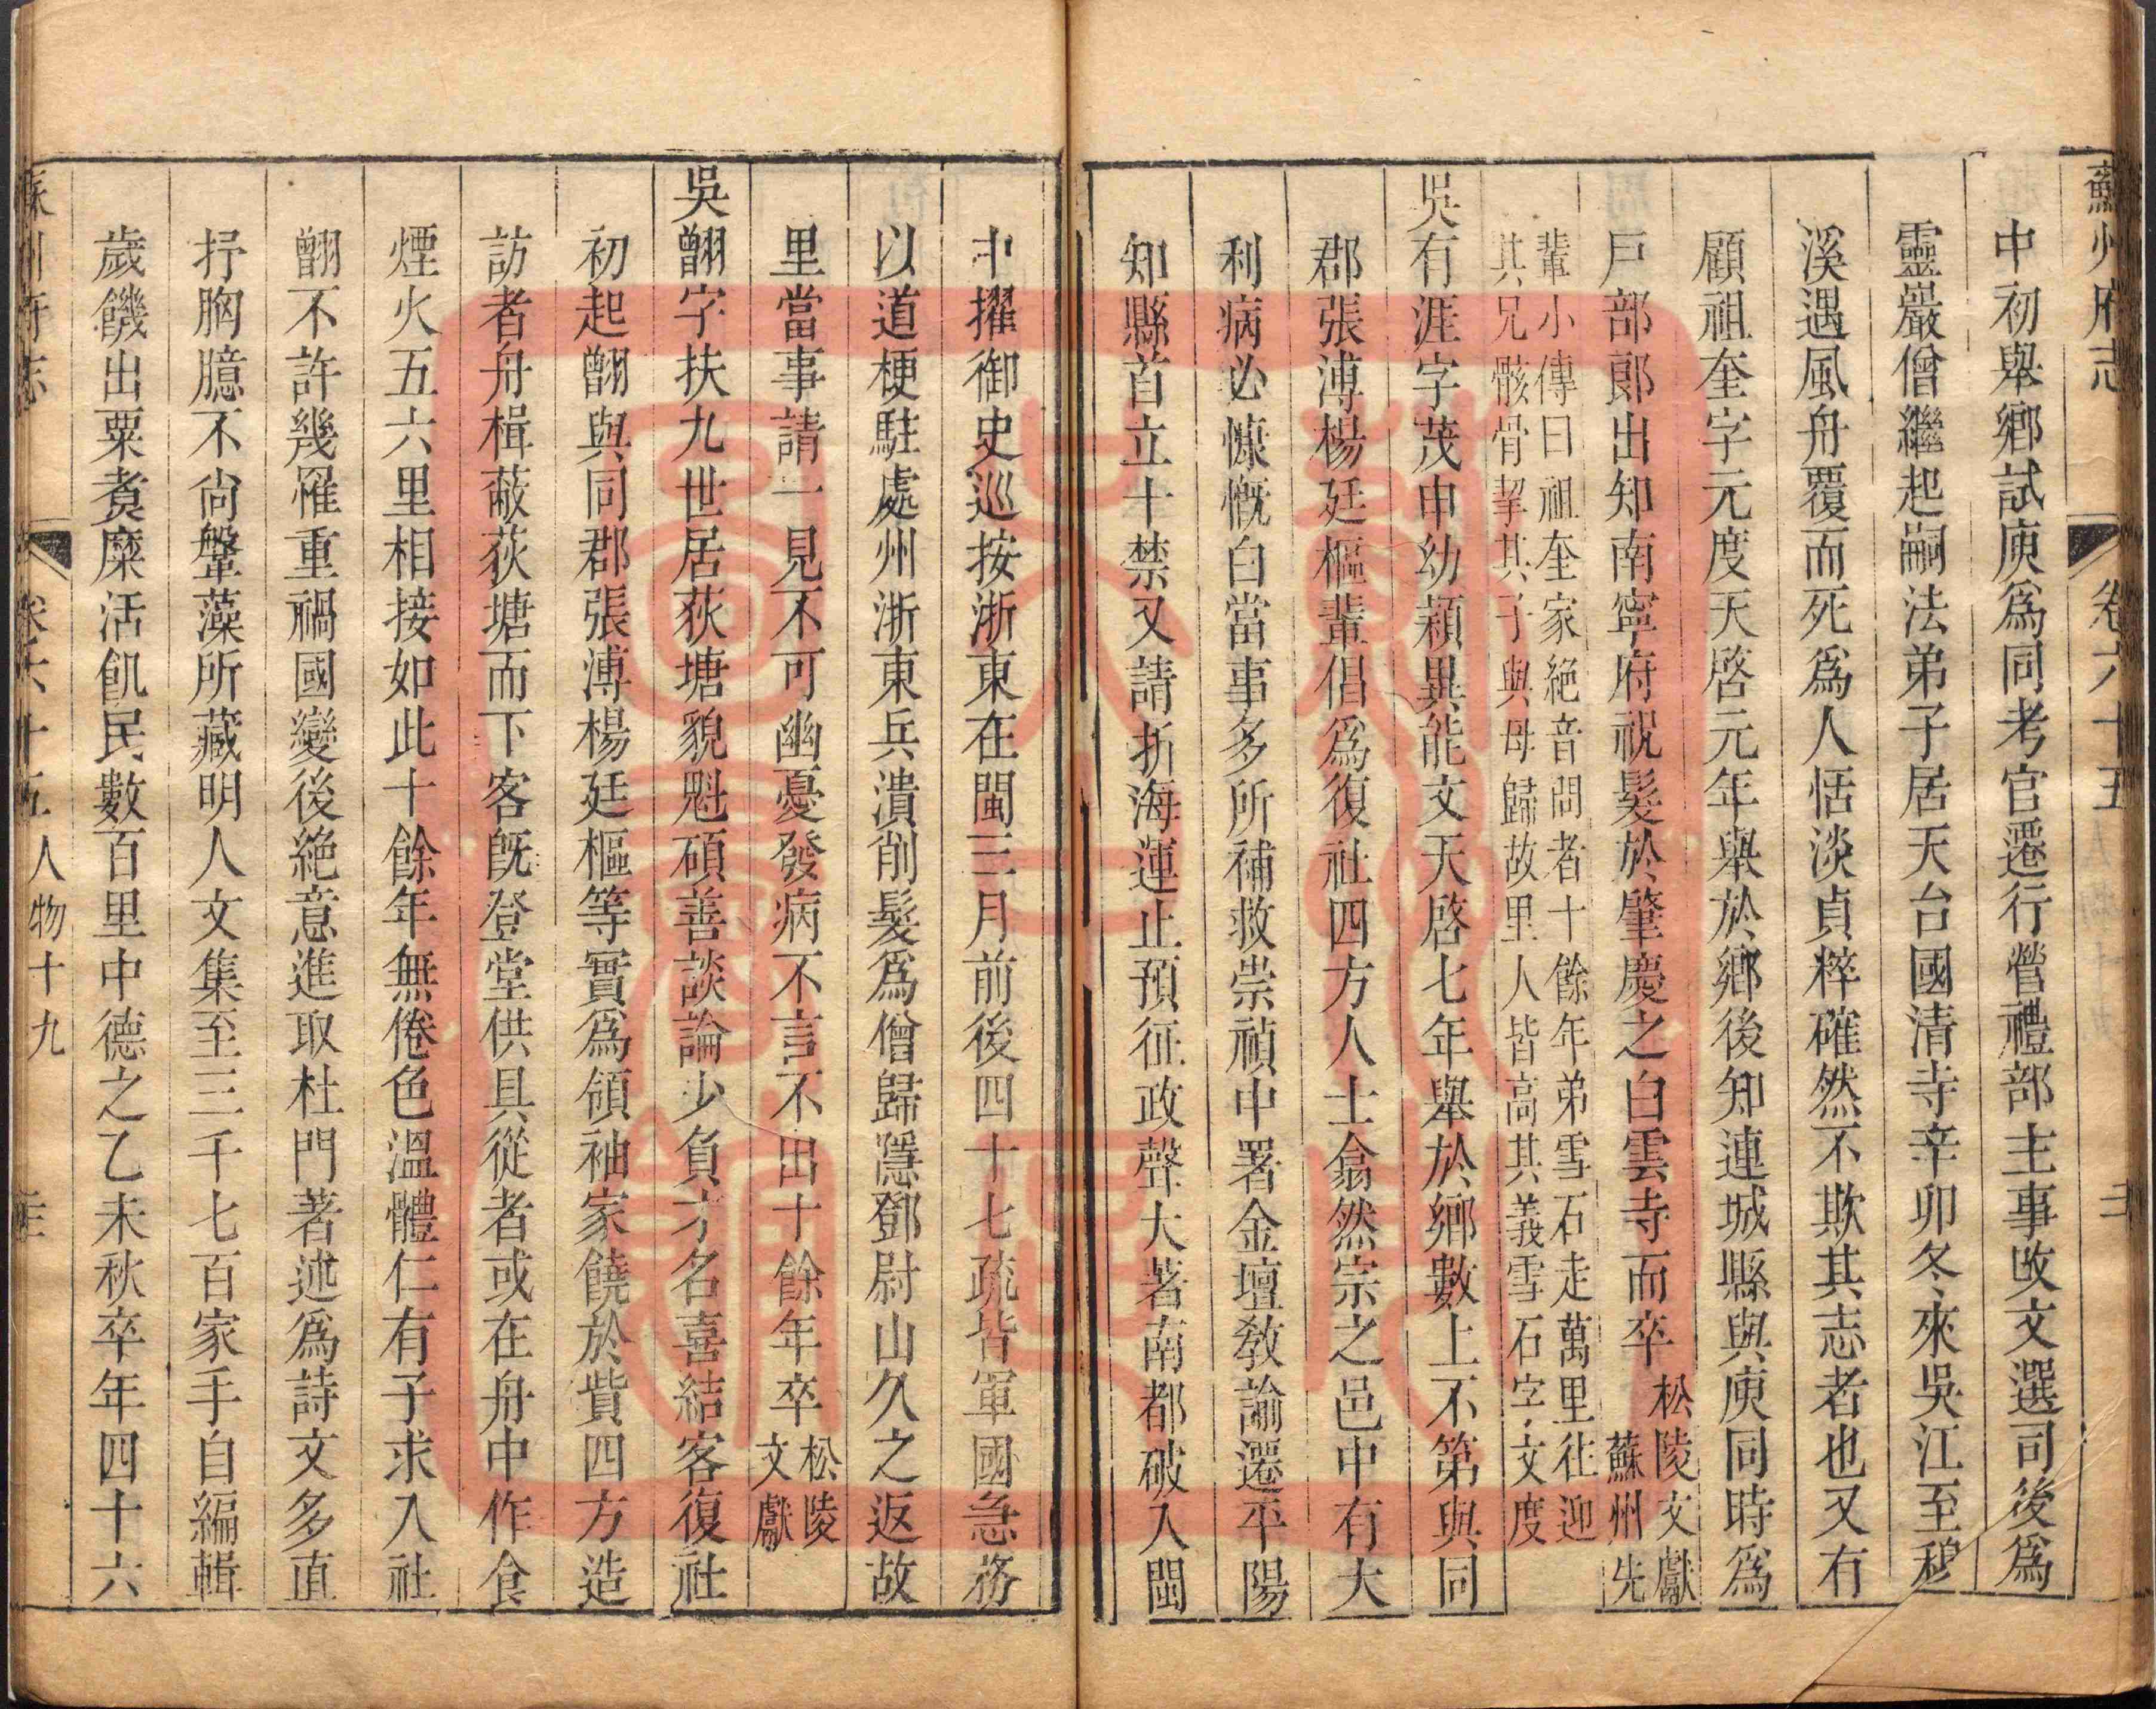 蘇州府志 卷六十五
中初舉鄉試庾爲同考官遷行營禮部主事改文選司後爲
靈巖僧繼起嗣法弟子居天台國清寺辛卯冬來吳江至穆
溪遇風舟覆而死爲人恬淡貞粹確然不欺其志者也又有
顧祖奎字元度天啓元年舉於鄉後知連城縣與庾同時爲
戶部郎出知南寧府祝髮於肇慶之白雲寺而卒 松陵文獻 蘇州先
輩小傳曰祖奎家絕音問者十餘年弟雪石走萬里往迎
其兄骸骨挈其子與母歸故里人皆高其義雪石字文度
吳有涯字茂申幼穎異能文天啓七年舉於鄉數上不第與同
郡張溥楊廷樞輩倡爲復社四方人士翕然宗之邑中有大
利病必慷慨白當事多所補救崇禎中署金壇敎諭遷平陽
知縣首立十禁又請折海運止預征政聲大著南都破入閩
中擢御史巡按浙東在閩三月前後四十七疏皆軍國急務
以道梗駐處州浙東兵潰削髮爲僧歸隱鄧尉山久之返故
里當事請一見不可幽憂發病不言不出十餘年卒 松陵
文獻
吳䎖字扶九世居荻塘貌魁碩善談論少負才名喜結客復社
初起䎖與同郡張溥楊廷樞等實爲領袖家饒於貲四方造
訪者舟楫蔽荻塘而下客旣登堂供具從者或在舟中作食
煙火五六里相接如此十餘年無倦色溫體仁有子求入社
䎖不許幾罹重禍國變後絕意進取杜門著述爲詩文多直
抒胸臆不尙鞶藻所藏明人文集至三千七百家手自編輯
歲饑出粟煑糜活飢民數百里中德之乙未秋卒年四十六
蘇州府志 卷六十五人物十九